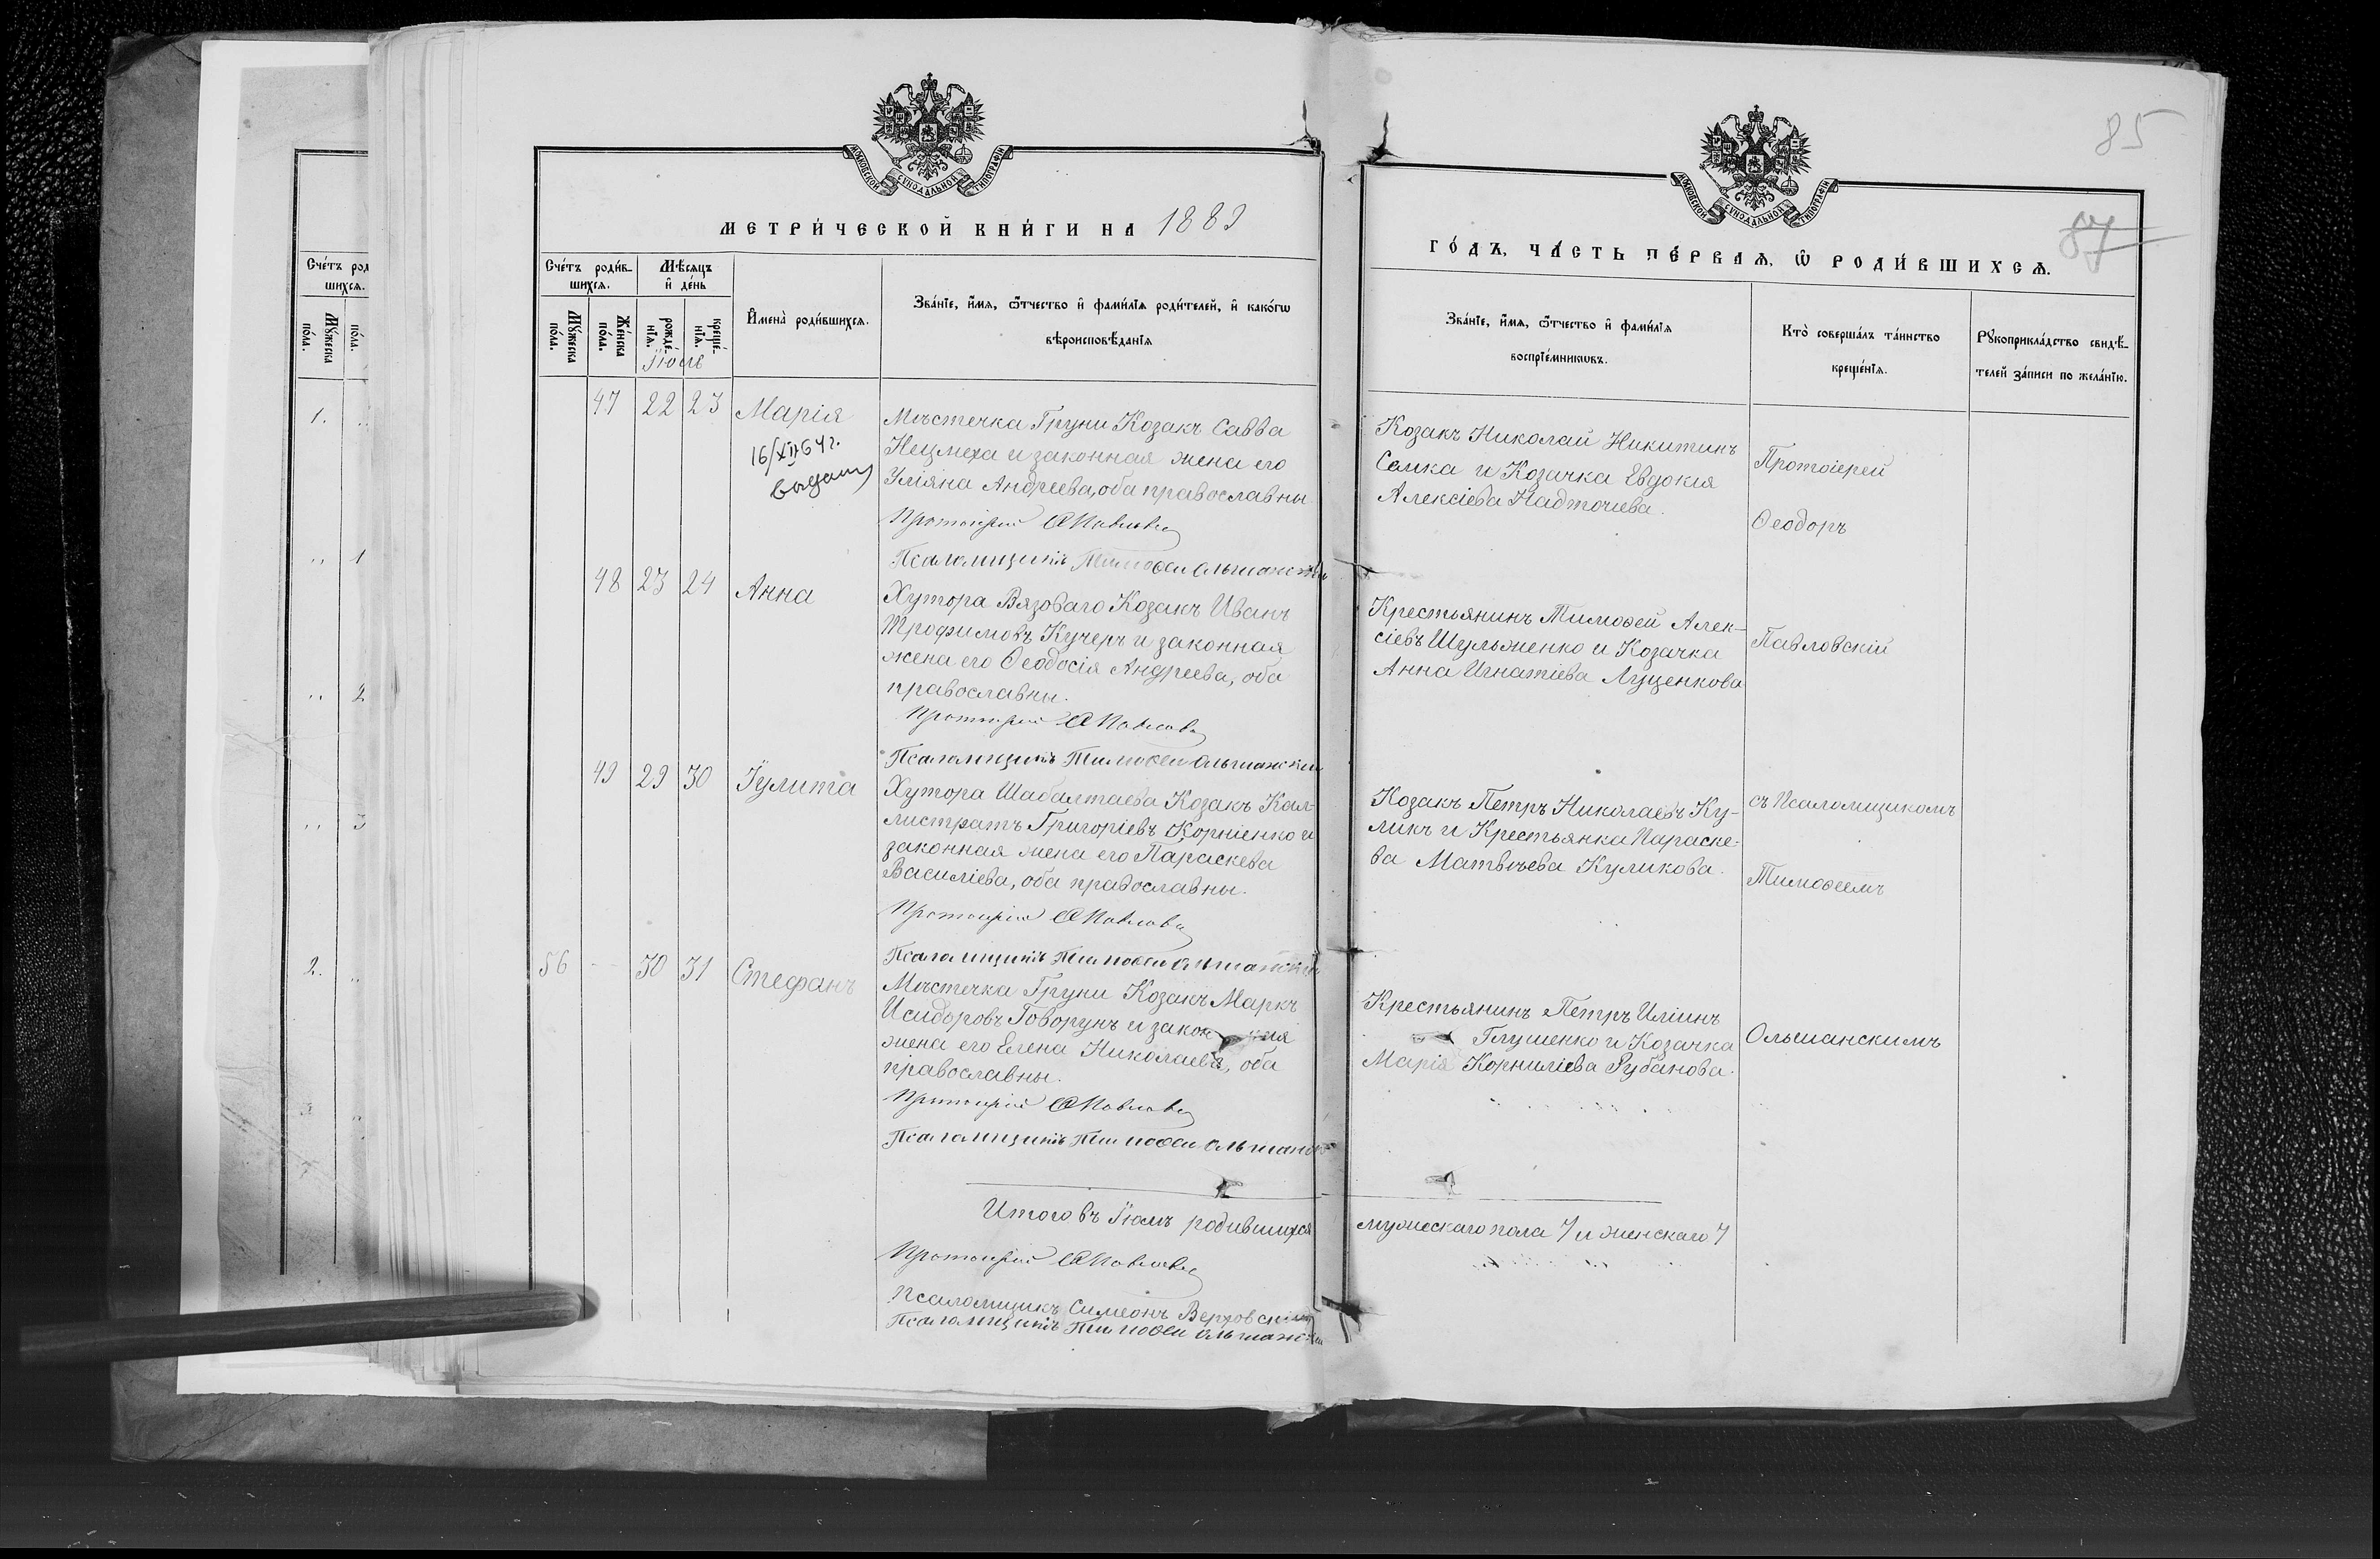 85
87
МОСКОВСКОЙ СѴНОДАЛЬНОЙ ТИПОГРАФІИ
МОСКОВСКОЙ СѴНОДАЛЬНОЙ ТИПОГРАФІИ
МЕТРИ́ЧЕСКОЙ КНИ́ГИ НА 1889
ГО́ДЪ, ЧА́СТЬ ПЕ́РВАѦ, Ѡ РОДИ́ВШИХСѦ.
Сче́тъ род
шихсѧ.
Мꙋ́жеска
по́ла.
по́ла.
1.
1
2
3
2.
Сче́тъ роди́в-
шихсѧ.
Мѣ́сѧцъ
и҆ де́нь
Мꙋ́жеска
по́ла.
Же́нска
по́ла.
рожде́-
нїѧ.
креще́-
нїѧ.
Іюль
И҆мена̀ роди́вшихсѧ.
Зва́нїе, и҆́мѧ, ѻ҆́тчество и҆ фами́лїѧ роди́телей, и҆ како́гѡ
вѣроисповѣ́данїѧ
Зва́нїе, и҆́мѧ, ѻ҆́тчество и҆ фами́лїѧ
воспрїе́мникѡвъ.
Кто̀ соверша́лъ та́инство
креще́нїѧ.
Рꙋкоприкла́дство свидѣ́-
телей за́писи по жела́нїю.
47 22 23 Марія
16/XII 64 г.
Мѣстечка Груни Козакъ Савва
Нецмеха и законная жена его
Уліяна Андреева, оба православны
Протоіерей Ѳ Павловс
Псаломщикъ Тимоѳей Ольшанскій
Козакъ Николай Никитинъ
Семка и Козачка Евдокія
Алексіева Надточіева.
Протоіерей
Ѳеодоръ
48 23 24 Анна
Хутора Вязоваго Козакъ Иванъ
Трофимовъ Кучеръ и законная
жена его Ѳеодосія Андреева, оба
православны.
Протоіерей Ѳ Павловс
Псаломщикъ Тимоѳей Ольшанскій
Крестьянинъ Тимоѳей Алек-
сіевъ Шульженко и Козачка
Анна Игнатіева Луценкова
Павловскій
49 29 30 Іулита
Хутора Шабалтаева Козакъ Кал-
листратъ Григоріевъ Корніенко и
законная жена его Параскева
Василіева, оба православны.
Протоіерей Ѳ Павловс
Псаломщикъ Тимоѳей Ольшанскій
Козакъ Петръ Николаевъ Ку-
ликъ и Крестьянка Параске-
ва Матвѣева Куликова.
съ Псаломщикомъ
Тимоѳеемъ
56 30 31 Стефанъ
Мѣстечка Груни Козакъ Маркъ
Исидоровъ Говорунъ и законная
жена его Елена Николаева, оба
православны.
Протоіерей Ѳ Павловс
Псаломщикъ Тимоѳей Ольшанск
Крестьянинъ Петръ Иліинъ
Глушенко и Козачка
Марія Корниліева Рубанова.
Ольшанскимъ
Итого въ Іюлѣ родившихся
мужескаго пола 7 и женскаго 7
Протоіерей Ѳ Павловс
Псаломщикъ Симеонъ Верховскій
Псаломщикъ Тимоѳей Ольшанскій